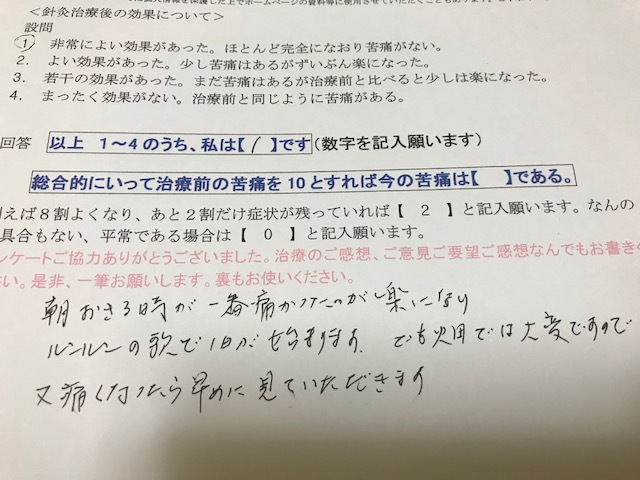 個人情報を保護した上でホームページの資料等に使用させていただくこともあります。
<針灸治療後の効果について>
設問
1. 非常によい効果があった。ほとんど完全になおり苦痛がない。
2. よい効果があった。少し苦痛はあるがずいぶん楽になった。
3. 若干の効果があった。まだ苦痛はあるが治療前と比べると少しは楽になった。
4. まったく効果がない。治療前と同じように苦痛がある。
回答 以上 1～4のうち、私は【 1 】です(数字を記入願います)
総合的にいって治療前の苦痛を10とすれば今の苦痛は【 】である。
例えば8割よくなり、あと2割だけ症状が残っていれば【 2 】と記入願います。なんの
具合もない、平常である場合は【 0 】と記入願います。
ンケートご協力ありがとうございました。治療のご感想、ご意見ご要望ご感想なんでもお書きく
さい。是非、一筆お願いします。裏もお使いください。
朝おきる時が一番痛かったのが楽になり
ルンルンの歌で1日が始まります でも畑では大変ですので
又痛くなったら早めに見ていただきます